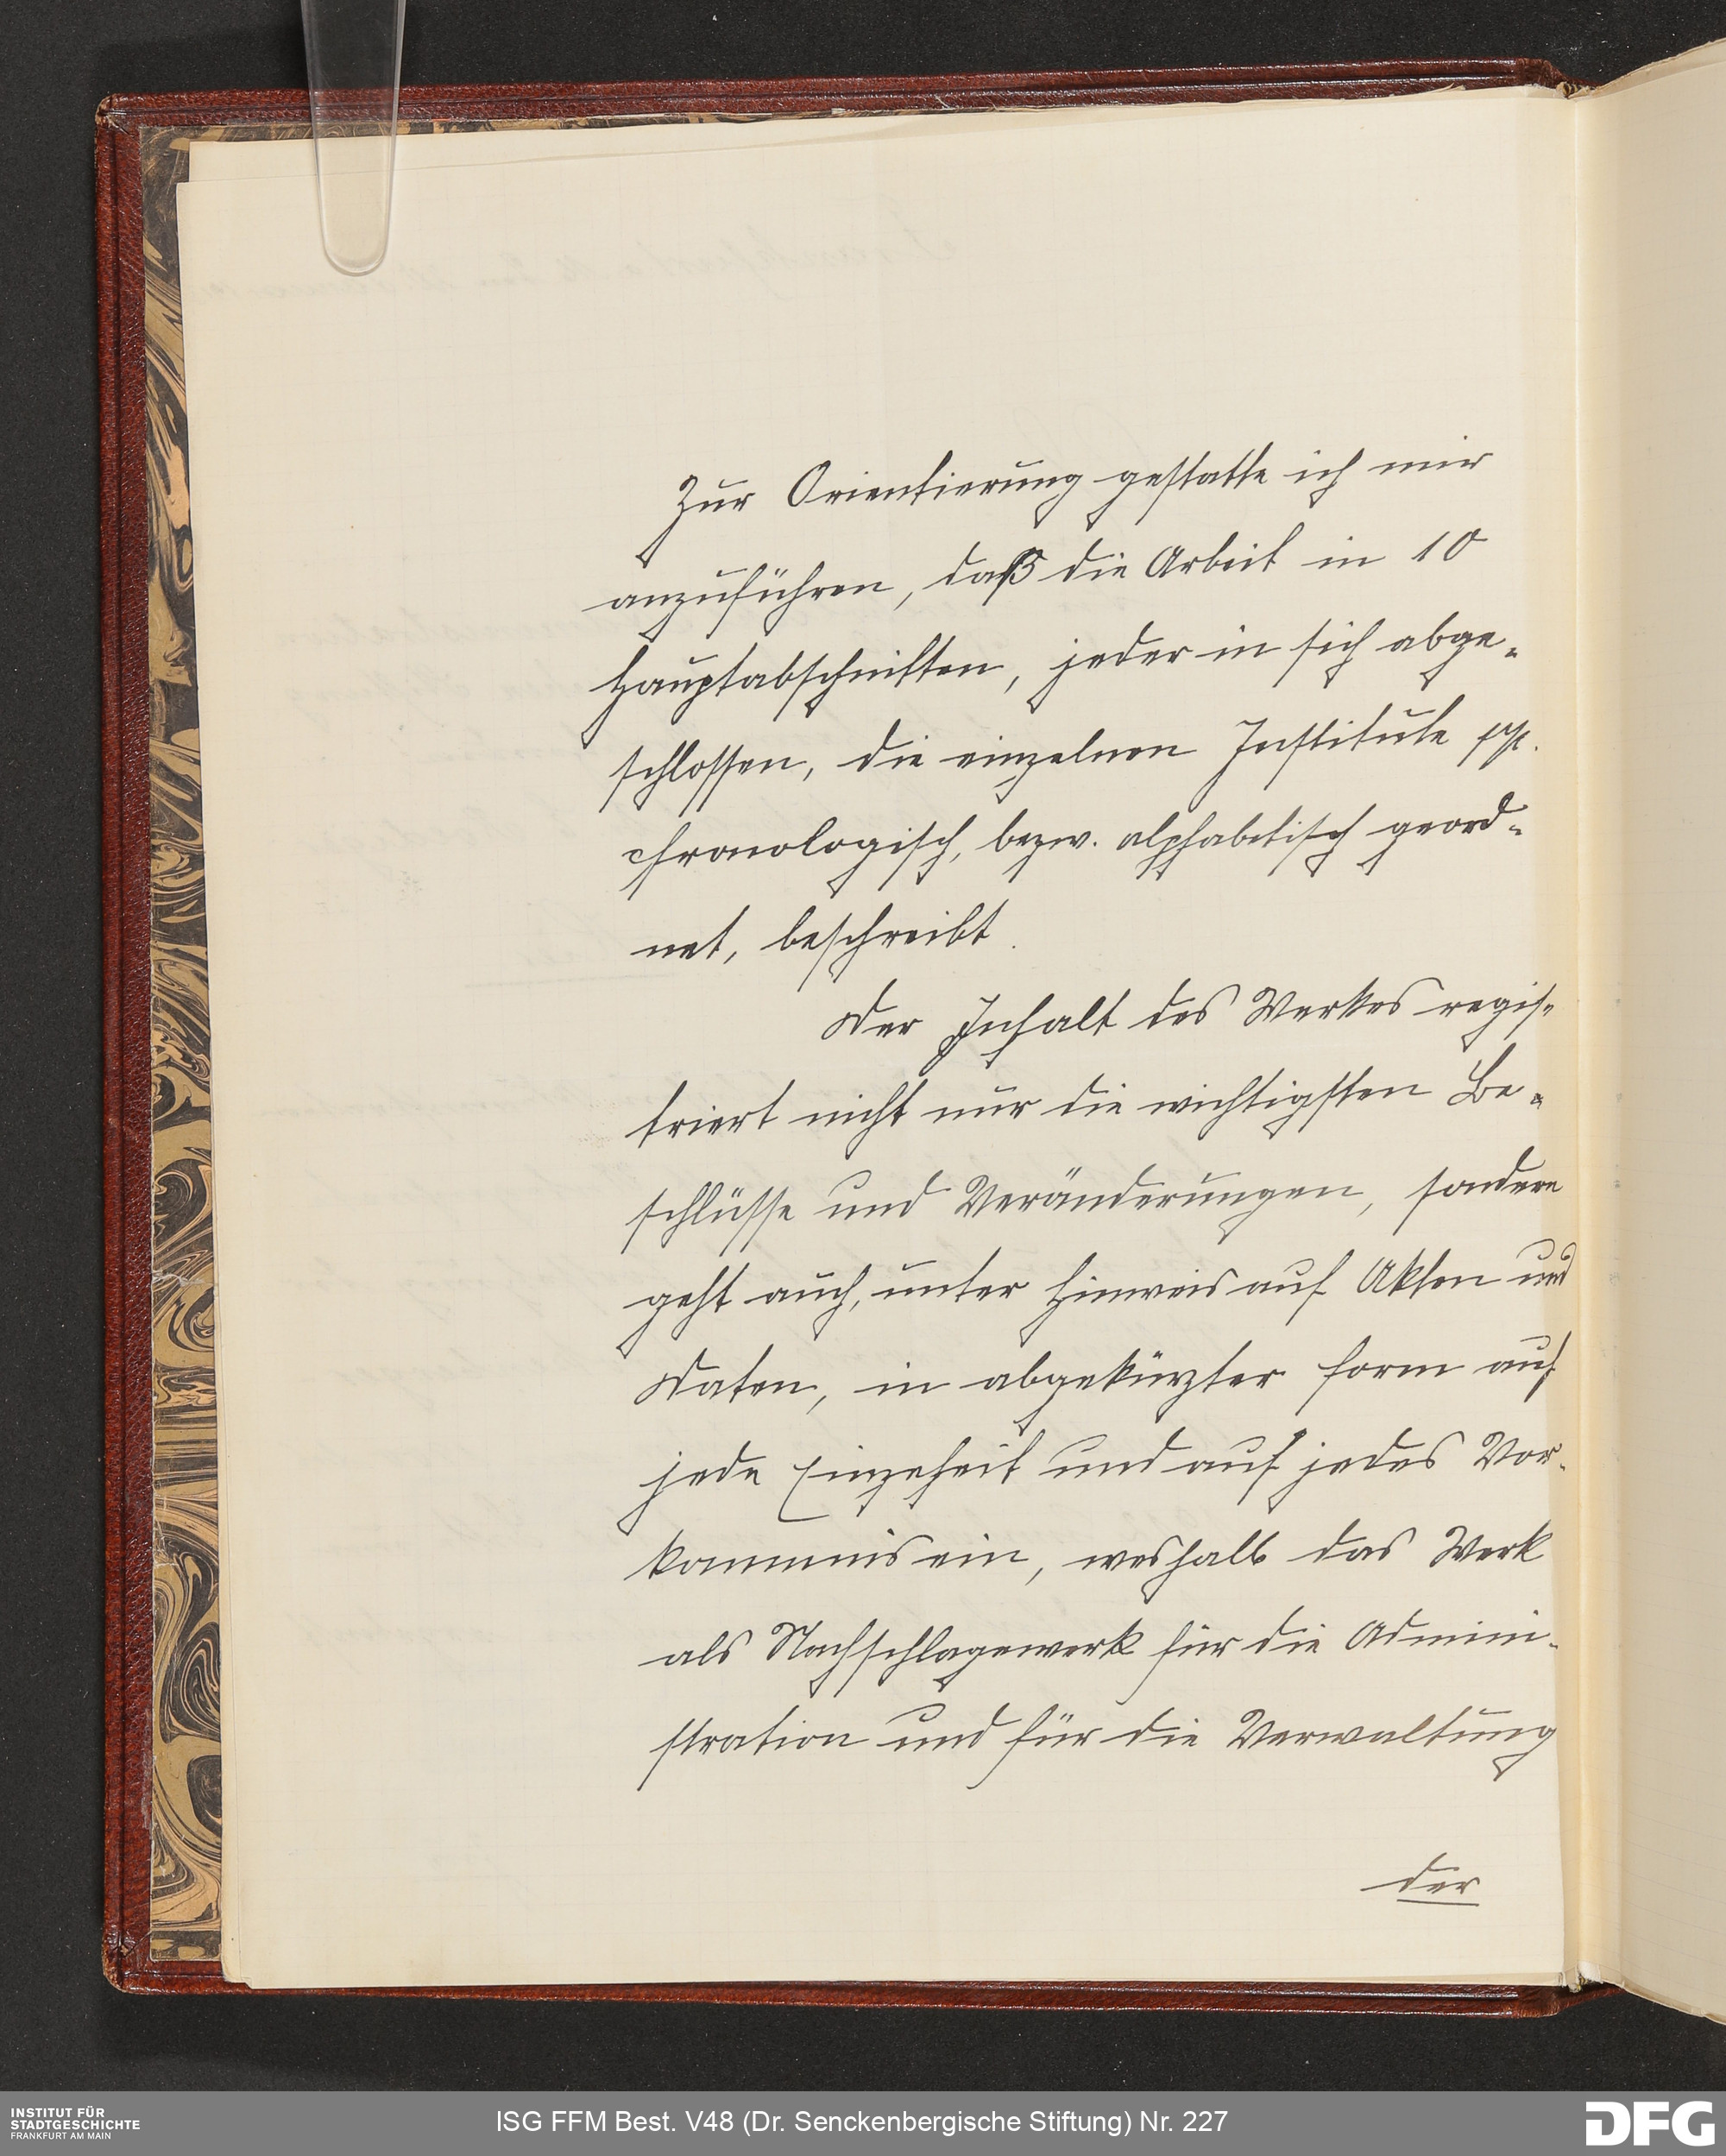 Zur Orientierung gestatte ich mir
anzuführen, daß die Arbeit in 10
Hauptabschnitten, jeder in sich abge-
schlossen, die einzelnen Institute pp.
chronologisch, bezw. alphabetisch geord-
net, beschreibt.
Der Inhalt des Werkes regis-
triert nicht nur die wichtigsten Be-
schlüsse und Veränderungen, sondern
geht auch, unter Hinweis auf Akten und
Daten, in abgekürzter Form auf
jede Einzeheit und auf jedes Vor-
kommnis ein, weshalb das Werk
als Nachschlagewerk für die Admini-
stration und für die Verwaltung
der
INSTITUT FÜR
STADTGESCHICHTE
FRANKFURT AM MAIN
ISG FFM Best. V48 (Dr. Senckenbergische Stiftung) Nr. 227
DFG